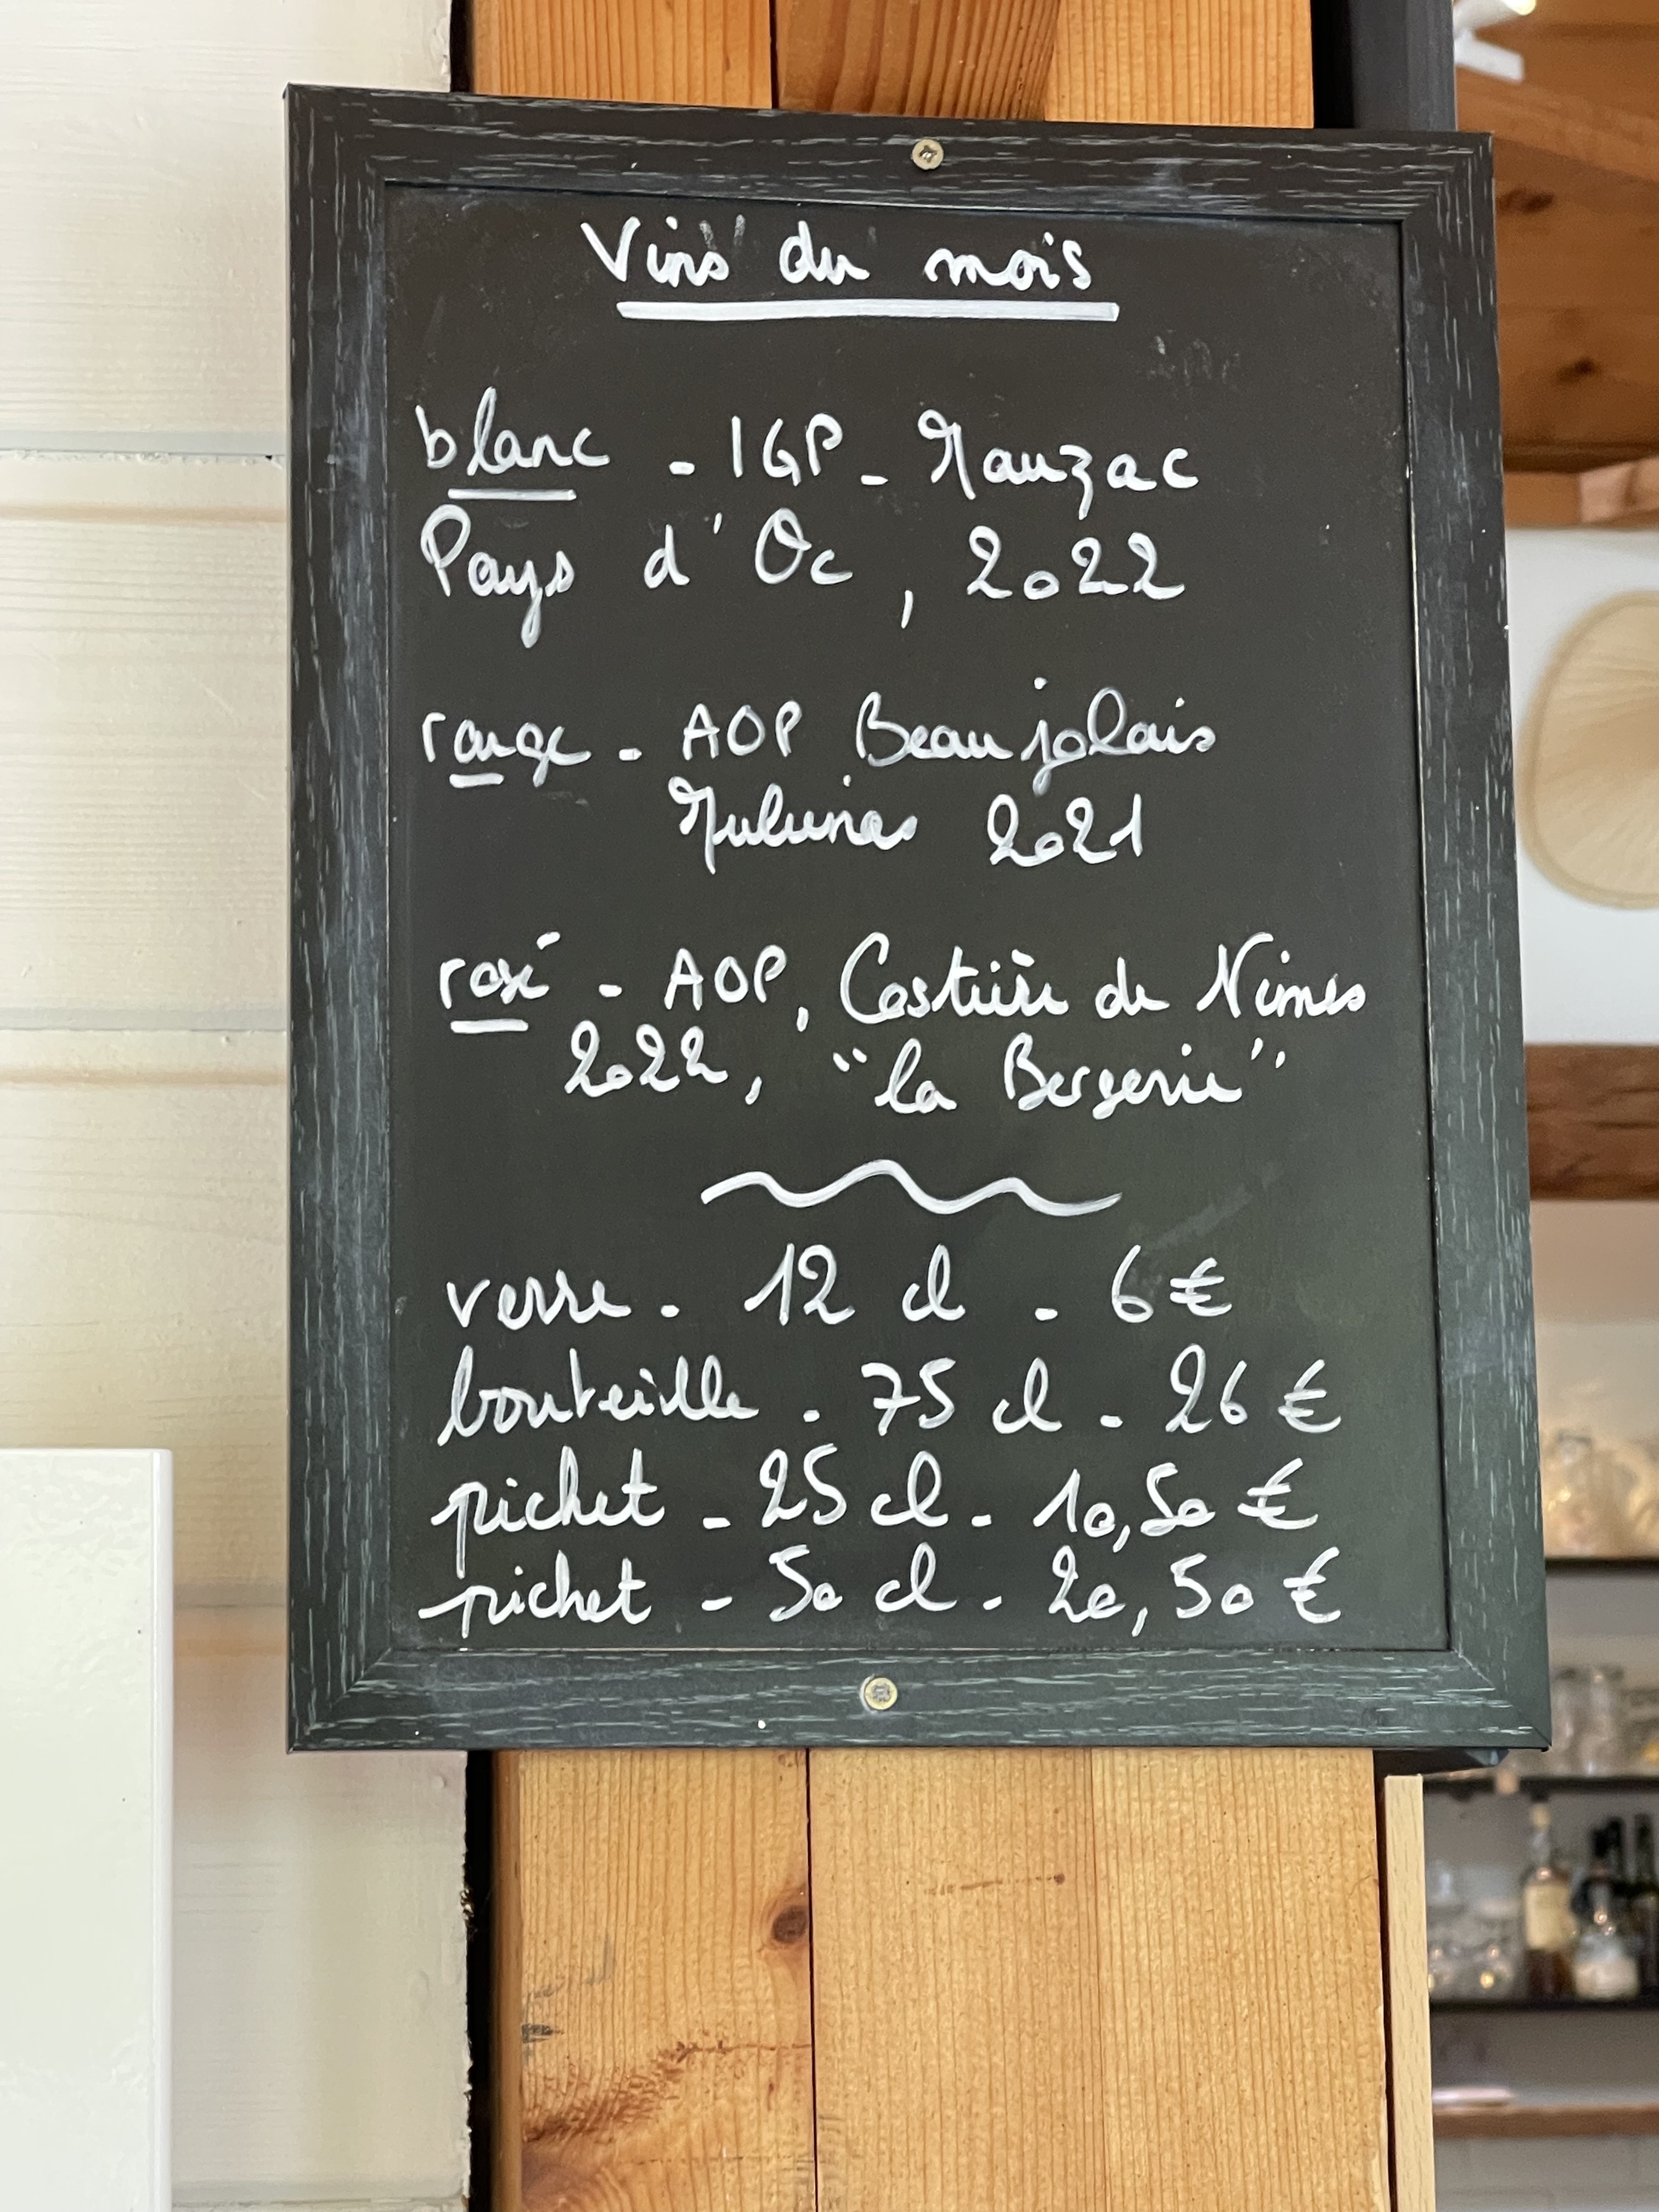 Vins du mois
blanc - IGP - Mauzac
Pays d'Oc, 2022
rouge - AOP Beaujolais
2021
rosé - AOP, Costière de Nimes
2022, "la Bergerie"
verre - 12 cl - 6 €
bouteille - 75 cl - 26 €
pichet - 25 cl - 10,50 €
pichet - 50 cl - 20,50 €